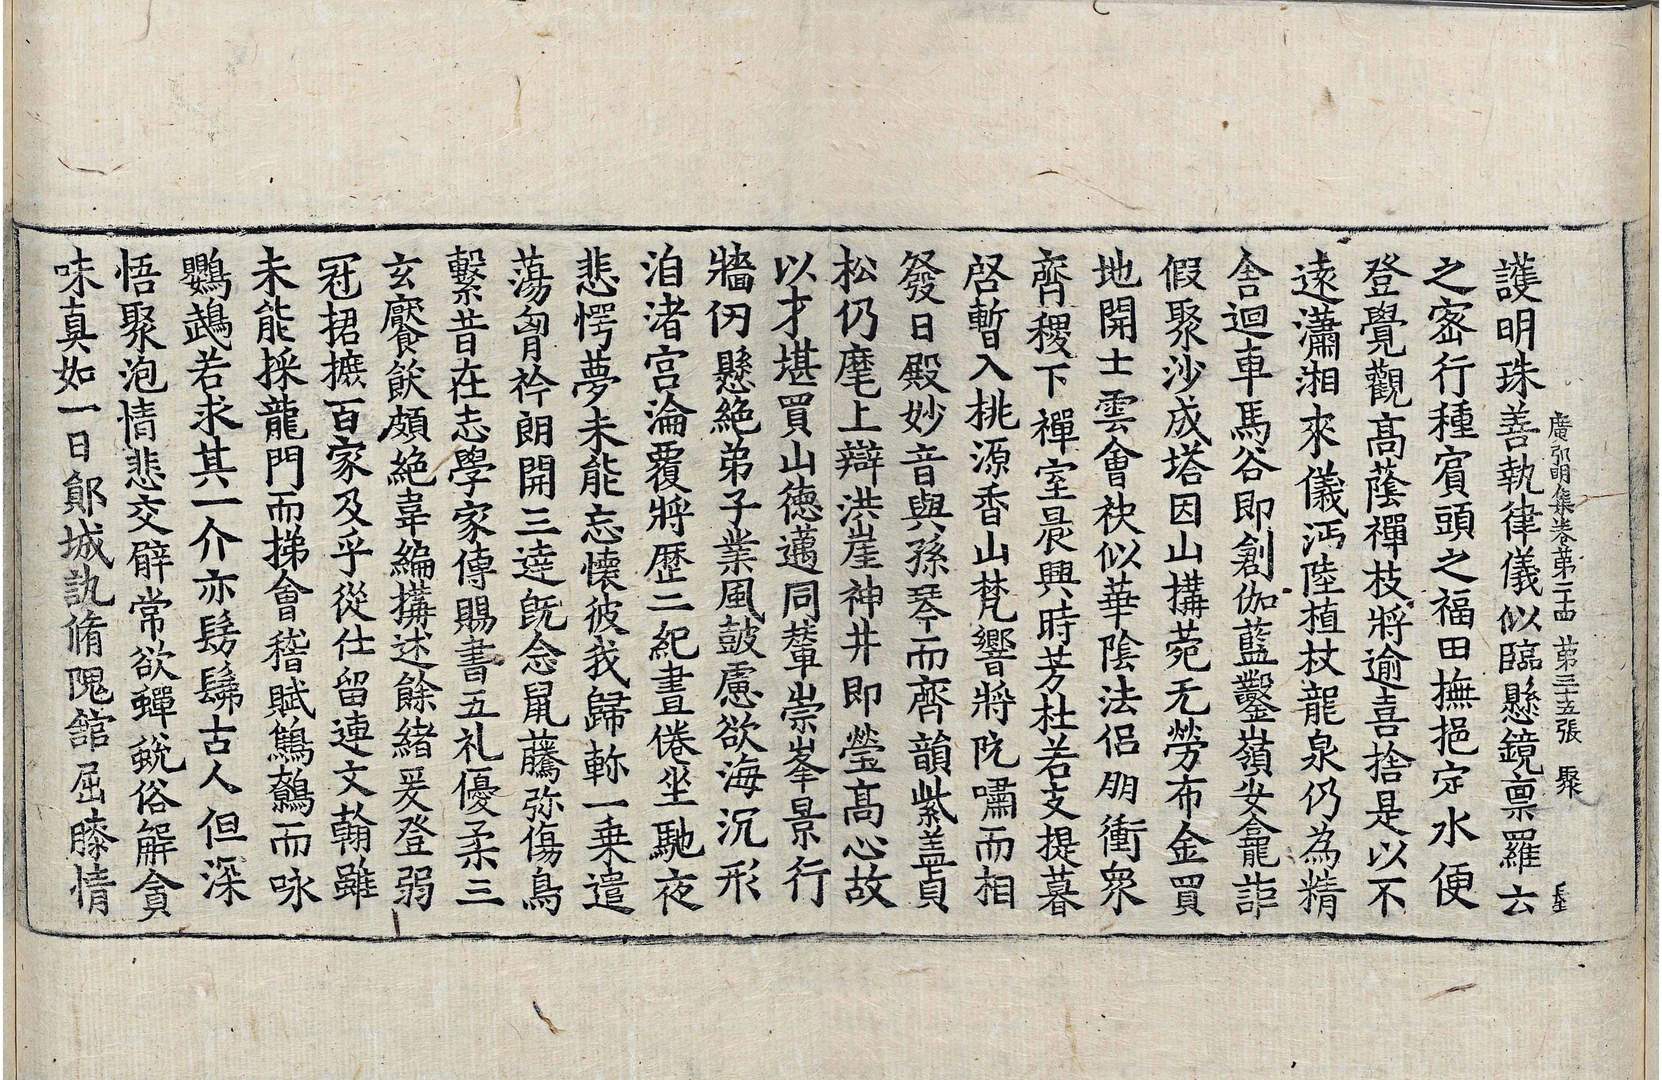 廣弘明集卷第二十四 第三十五張 聚
護明珠善執律儀似臨懸鏡禀羅云
之宻行種賔頭之福田撫挹定水便
登覺觀高蔭禪枝將逾喜捨是以不
逺瀟湘來儀沔陸植杖龍泉仍為精
舎迴車馬谷即創伽藍鑿嶺安龕詎
假聚沙成塔因山搆菀无勞布金買
地開士雲會袂似華陰法侣朋衝衆
齊稷下禪室晨興時芳杜若支提暮
啓暫入桃源香山梵響將阮嘯而相
發日殿妙音與孫琴而齊韻紫盖貞
松仍麾上辯洪崖神井即瑩高心故
以才堪買山德邁同輦崇峯景行
牆仞懸絶弟子業風鼓慮欲海沉形
洎渚宮淪覆將歴二紀晝倦坐馳夜
悲愕夢未能忘懷彼我歸軫一乗遣
蕩胷衿朗開三達旣念鼠藤弥傷鳥
繫昔在志學家傳賜書五礼優柔三
玄饜飫頗絶韋編搆述餘緒爰登弱
冠捃摭百家及乎從仕留連文翰雖
未能採龍門而梯會稽賦鷦鷯而咏
鸚鵡若求其一介亦髣髴古人但深
悟聚泡情悲交臂常欲蟬蛻俗解貪
味真如一日鄓城訊脩隗舘屈膝情